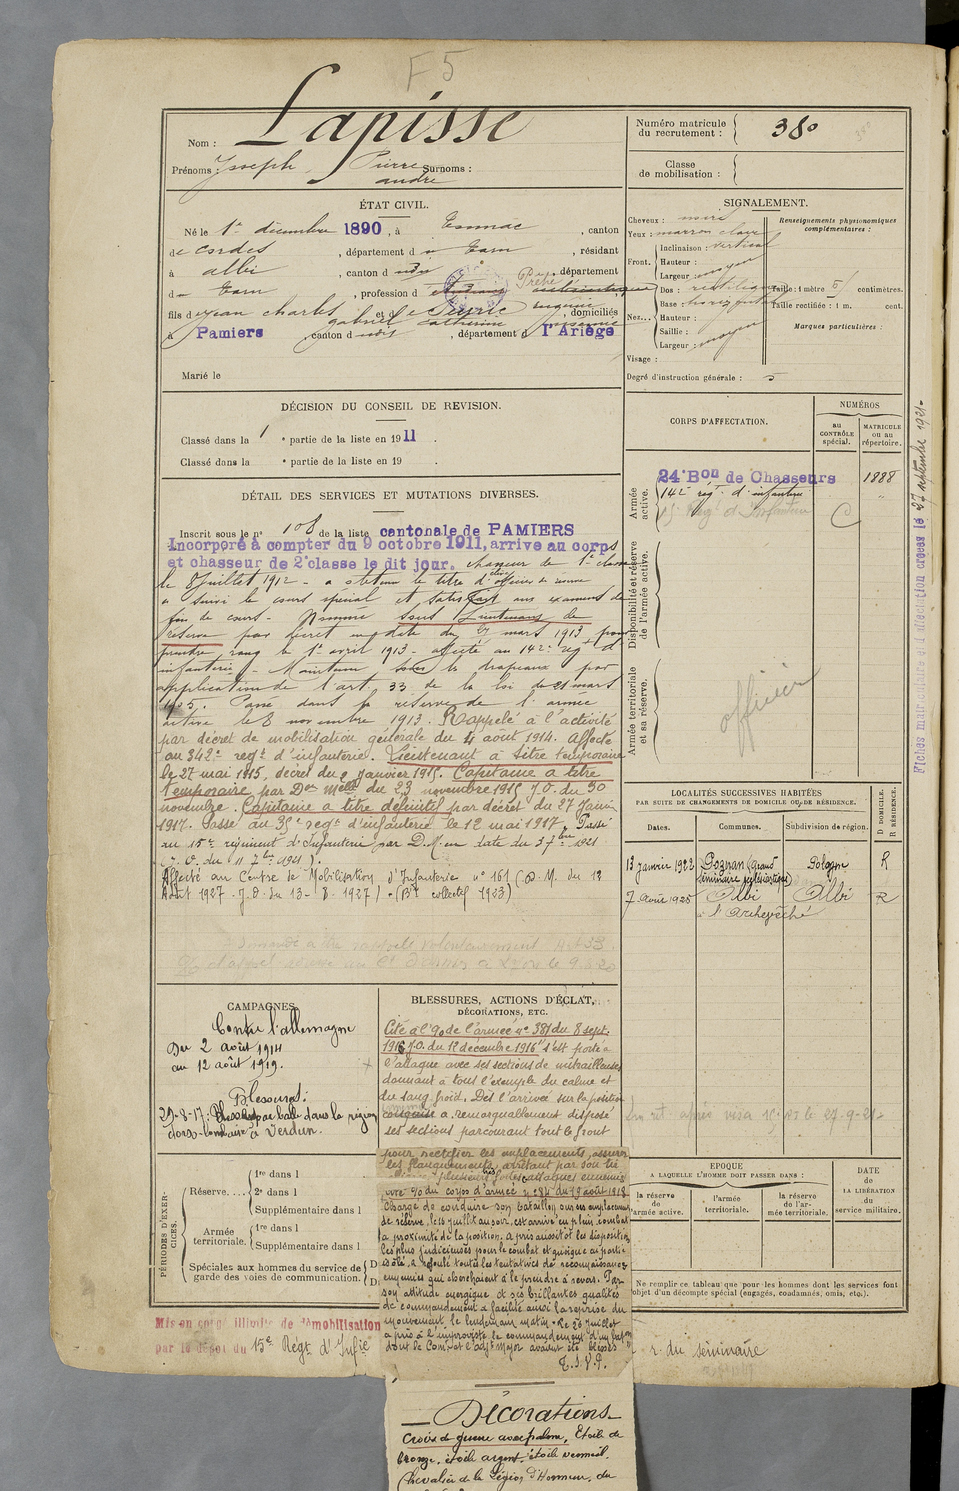 F 5
Nom : Lapisse
Prénoms : Joseph Pierre Surnoms :
andré
Numéro matricule du recrutement : 380
Classe de mobilisation :
ÉTAT CIVIL.
Né le 1er décembre 1890, à , canton
de Cordes , département d u Tarn , résidant
à albi , canton d udu , département
du Tarn , profession d Prêtre
fils d e jean charles gabriel et d e eugénie catherine , domiciliés
à Pamiers , canton d udu , département d l'Ariège
Marié le
SIGNALEMENT.
Cheveux : noirs
Yeux : marron clair
Front. Inclinaison : vertical
Hauteur :
Largeur : moyen
Nez... Dos : rectiligne
Base : horizontal
Hauteur :
Saillie :
Largeur : moyen
Visage :
Renseignements physionomiques complémentaires :
Taille : 1 mètre centimètres.
Taille rectifiée : 1 m. cent.
Marques particulières :
Degré d'instruction générale : 5
DÉCISION DU CONSEIL DE REVISION.
Classé dans la 1 e partie de la liste en 1911 .
Classé dans la e partie de la liste en 19 .
DÉTAIL DES SERVICES ET MUTATIONS DIVERSES.
Inscrit sous le n° 108 de la liste cantonale de PAMIERS
Incorporé à compter du 9 octobre 1911, arrive au corps
et chasseur de 2e classe le dit jour. chasseur de 1e classe
le 8 juillet 1912 - a obtenu le titre d'élève officier de réserve
a suivi le cours spécial et satisfait aux examens de
fin de cours - Nommé sous Lieutenant de
réserve par décret en date du mars 1913 pour
prendre rang le 1er avril 1913 - affecté au 142e régt d'
infanterie - Maintenu sous les drapeaux par
application de l'art. 33 de la loi du 21 mars
1905. Passé dans la réserve de l'armée
active le 8 novembre 1913. Rappelé à l'activité
par décret de mobilisation générale du 4 août 1914. Affecté
au 342e régt d'infanterie. Lieutenant à titre temporaire
le 27 mai 1915, décret du 2 janvier 1915. Capitaine a titre
temporaire par Don Melle du 23 novembre 1915 J.O. du 30
novembre. Capitaine a titre définitif par décret du 27 Janvier
1917. Passé au 35e régt d'infanterie le 12 mai 1917. Passé
au 15e régiment d'Infanterie par D.M. en date du 3 7bre 1921
(J.O. du 11 7bre 1921).
Affecté au Centre de Mobilisation d'Infanterie n° 161 (D.M. du 12
Août 1927 - J.O. du 13-8-1927) - (Bt collectif 1923)
Demandé à être rappelé volontairement Art 33
CORPS D'AFFECTATION.
NUMÉROS
AU CONTRÔLE spécial.
MATRICULE OU AU répertoire.
Armée active.
24e Bon de Chasseurs 1888
142e régt d'infanterie "
15e Regt d'Infanterie
Disponibilité et réserve de l'armée active.
Armée territoriale et sa réserve.
officier
Fiches matriculaire et d'affectation créées le 27 septembre 1921
LOCALITÉS SUCCESSIVES HABITÉES
PAR SUITE DE CHANGEMENTS DE DOMICILE OU DE RÉSIDENCE.
Dates. Communes. Subdivision de région. D DOMICILE. R RÉSIDENCE.
13 janvier 1922 Poznan (Grand séminaire ecclésiastique) Pologne R
7 Août 1925 Albi à l'Archevêché Albi R
CAMPAGNES.
Contre l'allemagne
Du 2 août 1914
au 12 août 1919.
Blessures :
29-8-17 : par balle dans la région
dorso-lombaire à Verdun.
BLESSURES, ACTIONS D'ÉCLAT,
DÉCORATIONS, ETC.
Cité à l'go de l'armée n° 381 du 8 sept.
1916 J.O. du 12 décembre 1916 "s'est porté à
l'attaque avec ses sections de mitrailleuses
donnant à tous l'exemple du calme et
du sang froid. Dès l'arrivée sur la position
conquise a remarquablement disposé
ses sections parcourant tout le front
pour rectifier les emplacements, assurer
les flanquements, arrêtant par son tir
plusieurs fortes attaques ennemies
ordre go du corps d'armée n° 284 du 19 août 1918
Chargé de conduire son bataillon sur ses emplacements
de réserve, le 15 juillet au soir, est arrivé en plein combat
à proximité de la position. A pris aussitôt les dispositions
les plus judicieuses pour le combat et quoique en partie
isolé, a refoulé toutes les tentatives de reconnaissances
ennemies qui cherchaient à le prendre à revers. Par
son attitude énergique et ses brillantes qualités
de commandement a facilité ainsi la reprise du
mouvement le lendemain matin. Le 26 juillet
a pris à l'improviste le commandement d'un baton
dont le Comt et l'adjt Major avaient été blessés
T.S.V.P.
PÉRIODES D'EXERCICES.
Réserve.... 1re dans l
2e dans l
Supplémentaire dans l
Armée territoriale. 1re dans l
Supplémentaire dans l
Spéciales aux hommes du service de garde des voies de communication. D
D
EPOQUE
A LAQUELLE L'HOMME DOIT PASSER DANS :
la réserve de l'armée active.
l'armée territoriale.
la réserve de l'armée territoriale.
DATE de LA LIBÉRATION du service militaire.
Ne remplir ce tableau que pour les hommes dont les services font
l'objet d'un décompte spécial (engagés, condamnés, omis, etc.).
Mis en congé illimité de démobilisation
par le dépôt du 15e Régt d'Infie
r. du séminaire
Décorations
Croix de guerre avec palme, Etoile de
bronze, étoile argent, étoile vermeil.
Chevalier de la Légion d'Honneur, du